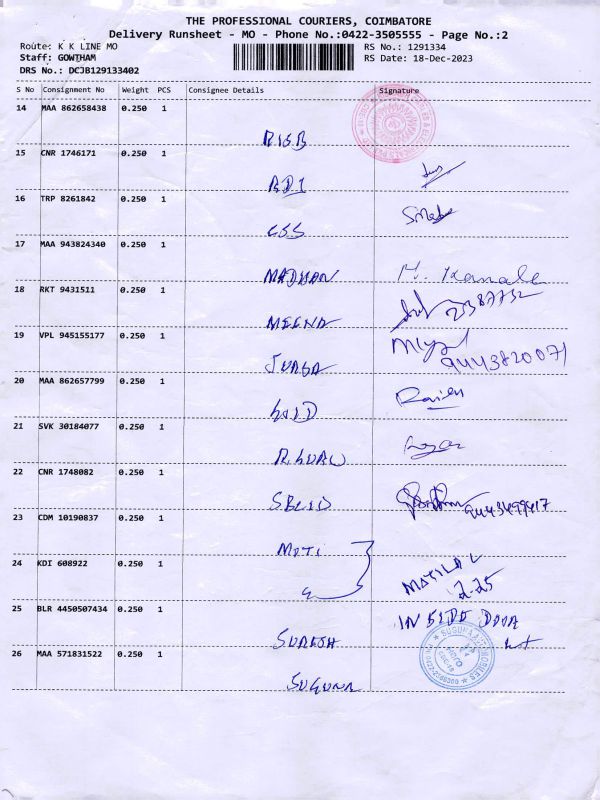 THE PROFESSIONAL COURIERS, COIMBATORE
Delivery Runsheet - MO - Phone No.:0422-3505555 - Page No.:2
Route: K K LINE MO
RS No.: 1291334
Staff: GOWTHAM
RS Date: 18-Dec-2023
DRS No.: DCJB129133402
S No Consignment No Weight PCS Consignee Details Signature
14 MAA 862658438 0.250 1
15 CNR 1746171 0.250 1
BDI
16 TRP 8261842 0.250 1
CSS
17 MAA 943824340 0.250 1
MADHAN
18 RKT 9431511 0.250 1
MEENA 2387732
19 VPL 945155177 0.250 1
DURGA 9443820071
20 MAA 862657799 0.250 1
21 SVK 30184077 0.250 1
22 CNR 1748082 0.250 1
9443499417
23 CDM 10190837 0.250 1
MOTI
24 KDI 608922 0.250 1
MOTILAL
2-25
25 BLR 4450507434 0.250 1
IN SIDE DOOR
SURESH
26 MAA 571831522 0.250 1
SUGUNA